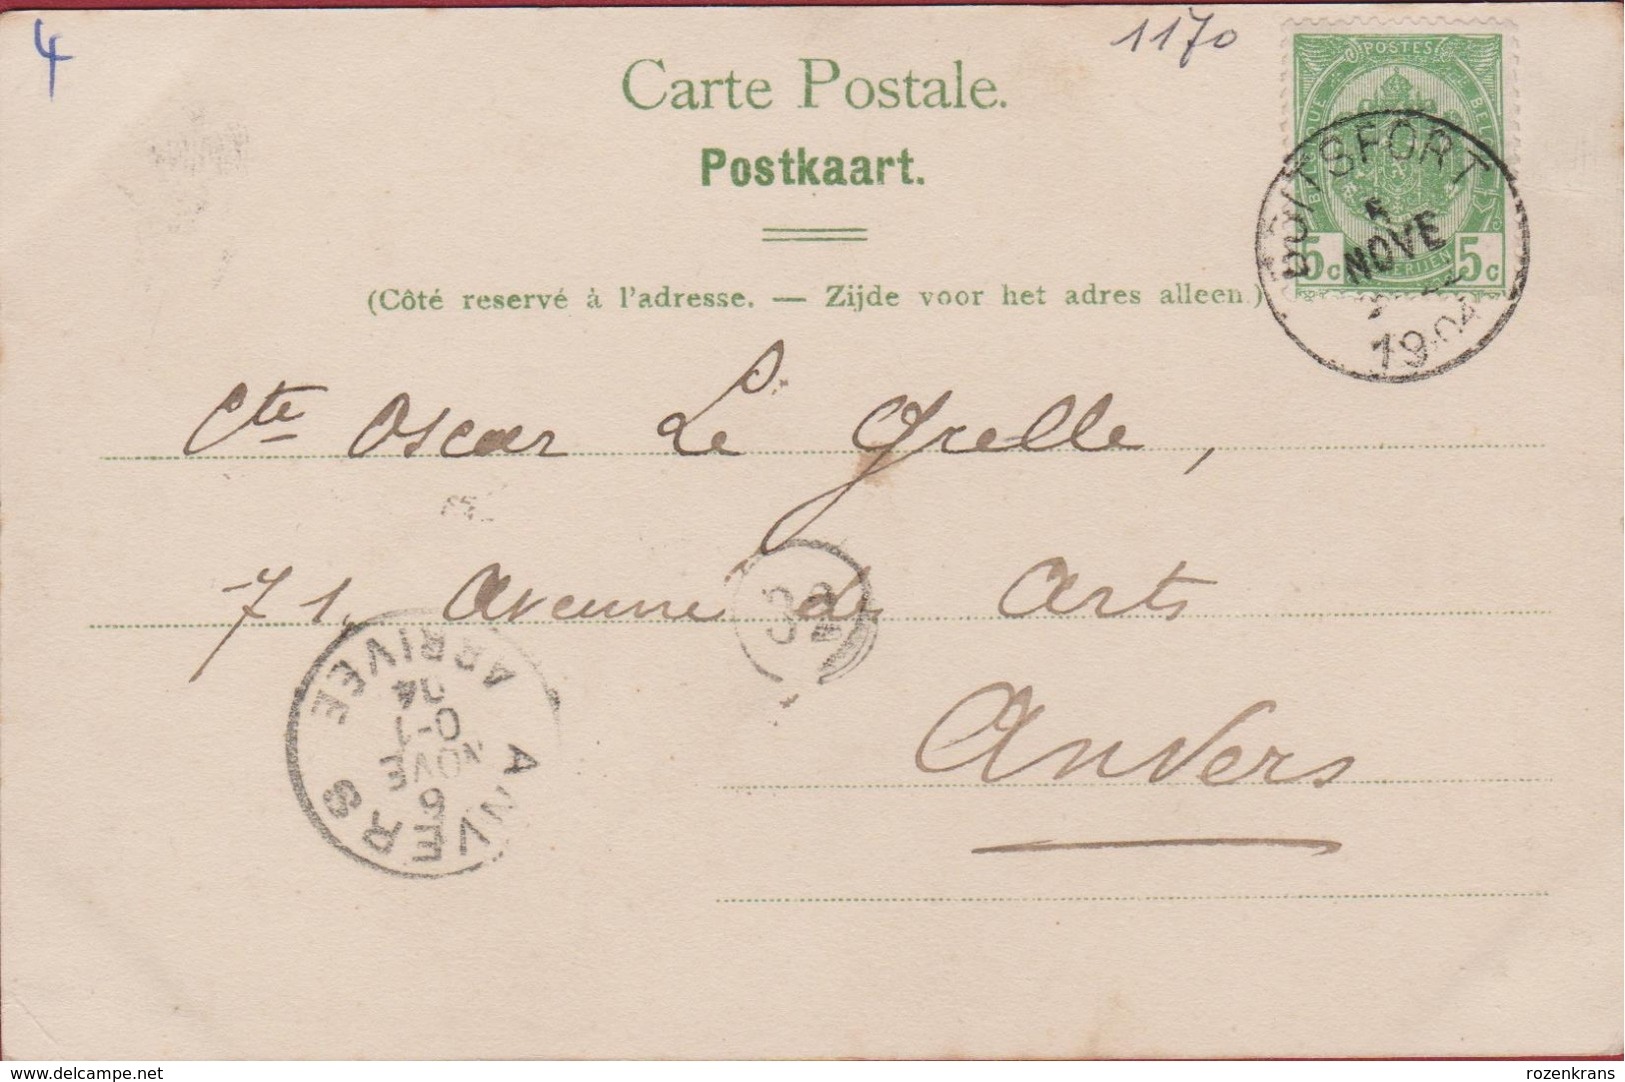 4
1170
Carte Postale.
Postkaart.
POSTES
5c 5c
BOITSFORT
5
NOVE
1904
(Côté reservé à l'adresse. — Zijde voor het adres alleen.)
Cte Oscar Le Grelle,
71, Avenue des Arts
Anvers
ANVERS
6
NOVE
0-1
04
ARRIVEE
delcampe.net
rozenkrans